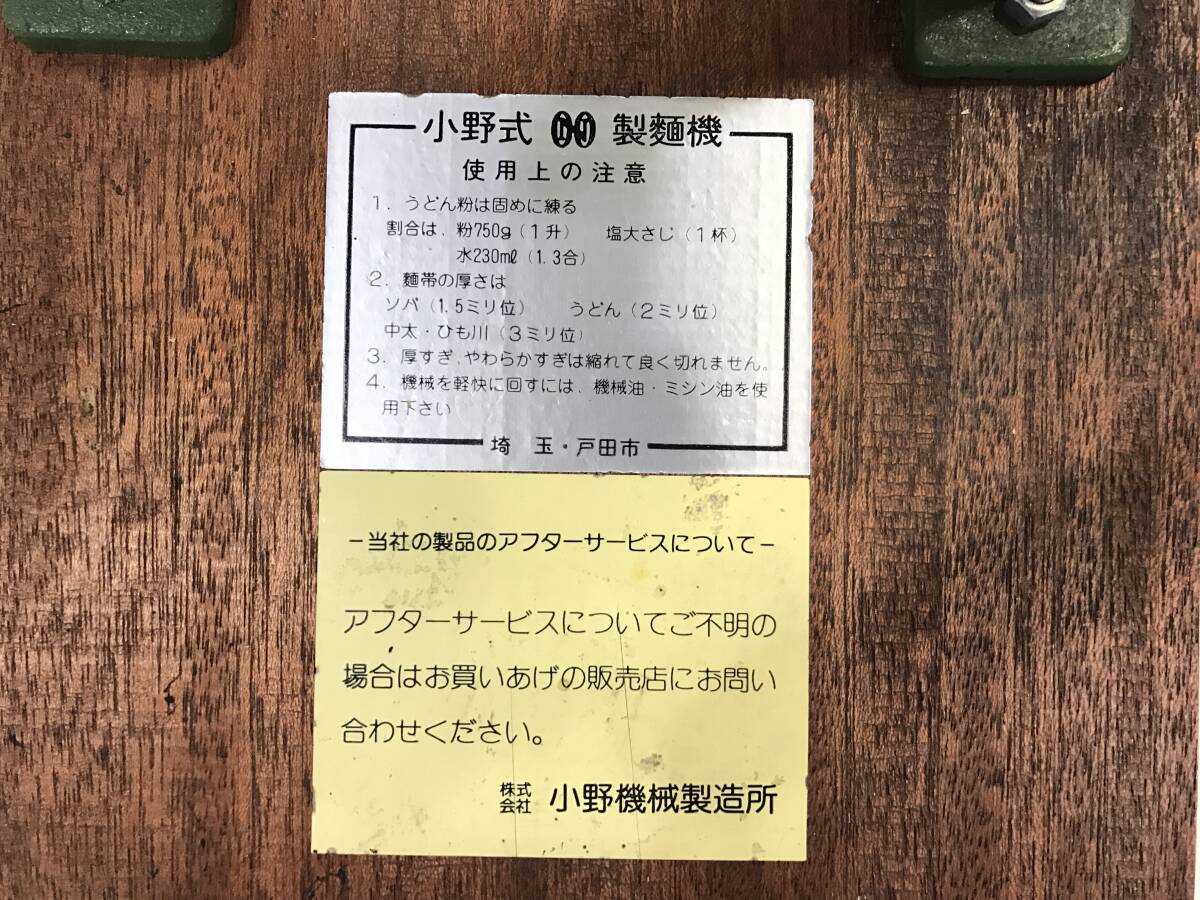 小野式 製麵機
使用上の注意
1. うどん粉は固めに練る
割合は、粉750g(1升) 塩大さじ(1杯)
水230mℓ(1.3合)
2. 麵帯の厚さは
ソバ(1.5ミリ位) うどん(2ミリ位)
中太・ひも川(3ミリ位)
3. 厚すぎ、やわらかすぎは縮れて良く切れません。
4. 機械を軽快に回すには、機械油・ミシン油を使
用下さい
埼 玉・戸田市
－当社の製品のアフターサービスについて－
アフターサービスについてご不明の
場合はお買いあげの販売店にお問い
合わせください。
株式会社 小野機械製造所